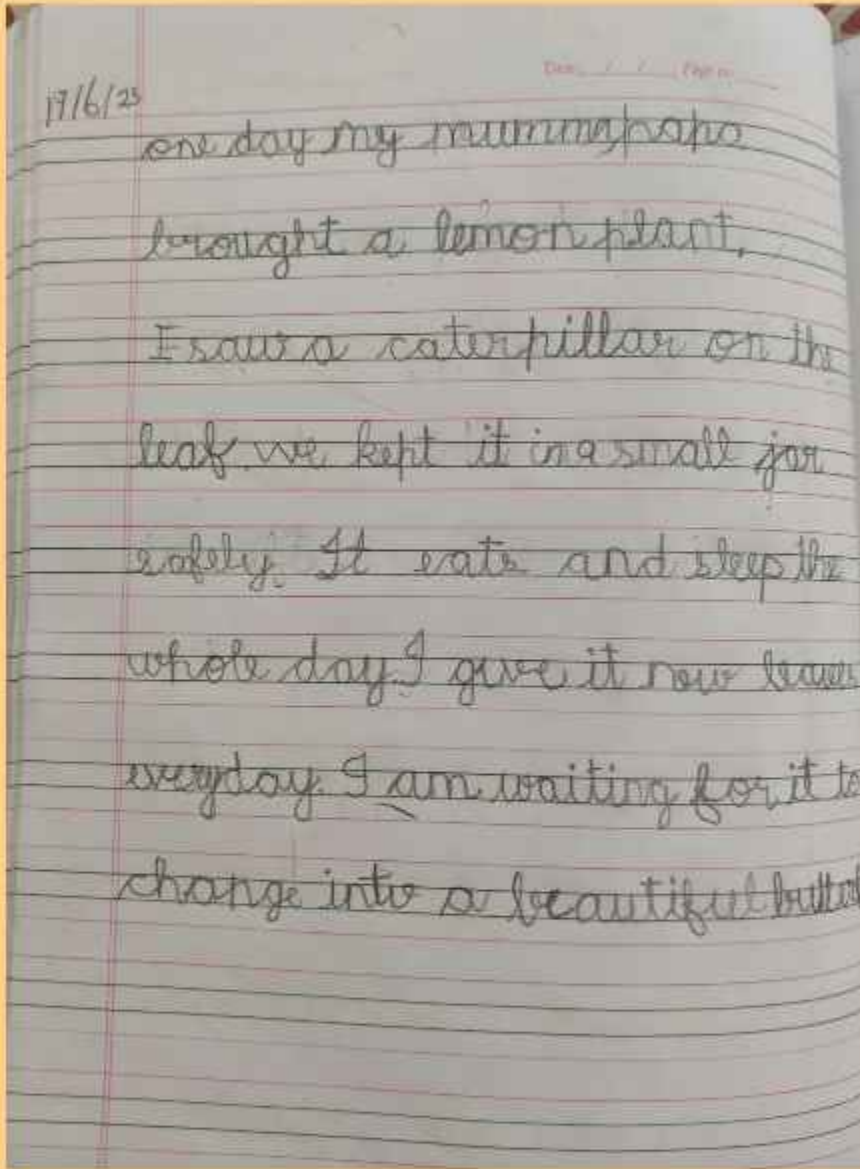 Date / / Page no
17/6/23
one day my mumma,papa
brought a lemon plant.
I saw a caterpillar on the
leaf. we kept it in a small jar
safely. It eats and sleep the
whole day. I give it new leaves
everyday. I am waiting for it to
change into a beautiful butterf